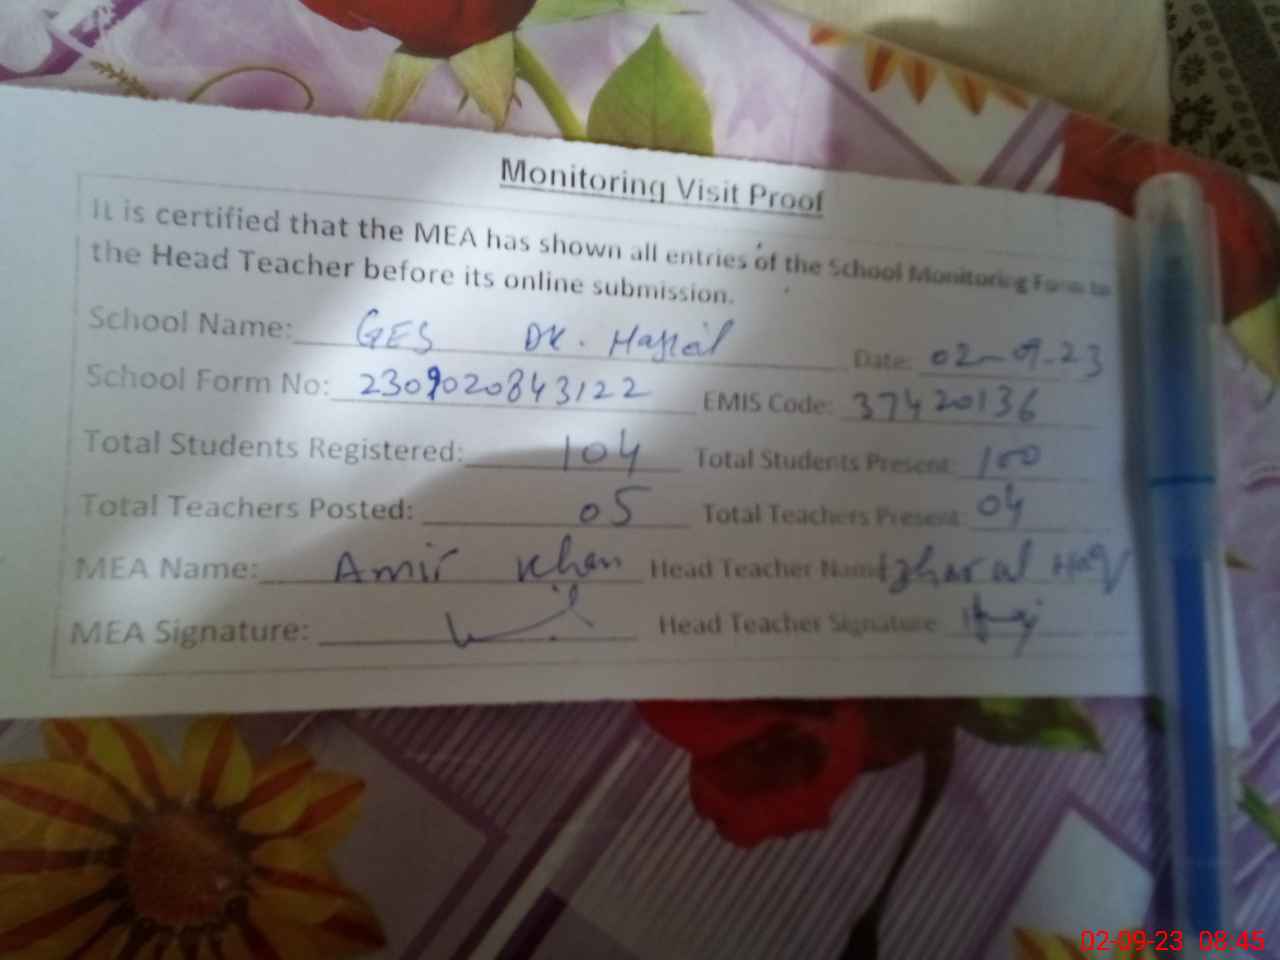 Monitoring Visit Proof
It is certified that the MEA has shown all entries of the School Monitoring Form to
the Head Teacher before its online submission.
School Name: GES DK. Date: 02-09-23
School Form No: 2309020843122 EMIS Code: 37420136
Total Students Registered: 104 Total Students Present: 100
Total Teachers Posted: 05 Total Teachers Present: 04
MEA Name: Amir Khan Head Teacher Name Izhar ul Haq
MEA Signature: Head Teacher Signature:
02-09-23 08:45